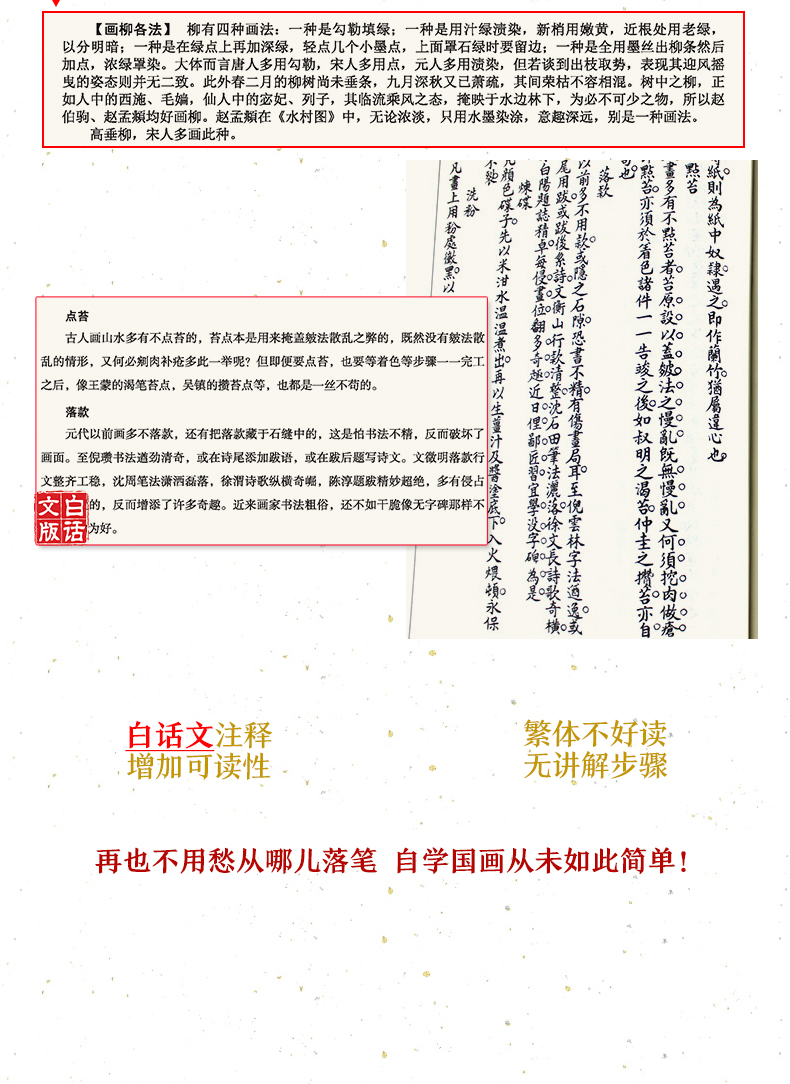 【画柳各法】 柳有四种画法：一种是勾勒填绿；一种是用汁绿渍染，新梢用嫩黄，近根处用老绿，
以分明暗；一种是在绿点上再加深绿，轻点几个小墨点，上面罩石绿时要留边；一种是全用墨丝出柳条然后
加点，浓绿罩染。大体而言唐人多用勾勒，宋人多用点，元人多用渍染，但若谈到出枝取势，表现其迎风摇
曳的姿态则并无二致。此外春二月的柳树尚未垂条，九月深秋又已萧疏，其间荣枯不容相混。树中之柳，正
如人中的西施、毛嫱，仙人中的宓妃、列子，其临流乘风之态，掩映于水边林下，为必不可少之物，所以赵
伯驹、赵孟頫均好画柳。赵孟頫在《水村图》中，无论浓淡，只用水墨染涂，意趣深远，别是一种画法。
高垂柳，宋人多画此种。
紙則為紙中奴隸遇之即作蘭竹猶屬違心也
點苔
畫多有不點苔者苔原設以蓋皴法之慢亂既無慢亂又何須挖肉做瘡
點苔亦須於着色諸件一一告竣之後如叔明之渴苔仲圭之攢苔亦自
苟也
落款
以前多不用款或隱之石隙恐書不精有傷畫局耳至倪雲林字法遒逸或
尾用跋或跋後系詩文衡山行款清整沈石田筆法灑落徐文長詩歌奇橫
白陽題誌精卓每侵畫位翻多奇趣近日俚鄙匠習宜學没字碑為是
煉碟
凡顏色碟子先以米泔水温温煮出再以生薑汁及醬塗底下入火煨頓永保
不裂
洗粉
凡畫上用粉處黴黑以
点苔
古人画山水多有不点苔的，苔点本是用来掩盖皴法散乱之弊的，既然没有皴法散
乱的情形，又何必剜肉补疮多此一举呢？但即便要点苔，也要等着色等步骤一一完工
之后，像王蒙的渴笔苔点，吴镇的攒苔点等，也都是一丝不苟的。
落款
元代以前画多不落款，还有把落款藏于石缝中的，这是怕书法不精，反而破坏了
画面。至倪瓒书法遒劲清奇，或在诗尾添加跋语，或在跋后题写诗文。文徵明落款行
文整齐工稳，沈周笔法潇洒磊落，徐渭诗歌纵横奇崛，陈淳题跋精妙超绝，多有侵占
的，反而增添了许多奇趣。近来画家书法粗俗，还不如干脆像无字碑那样不
为好。
白话
文版
白话文注释
增加可读性
繁体不好读
无讲解步骤
再也不用愁从哪儿落笔 自学国画从未如此简单！